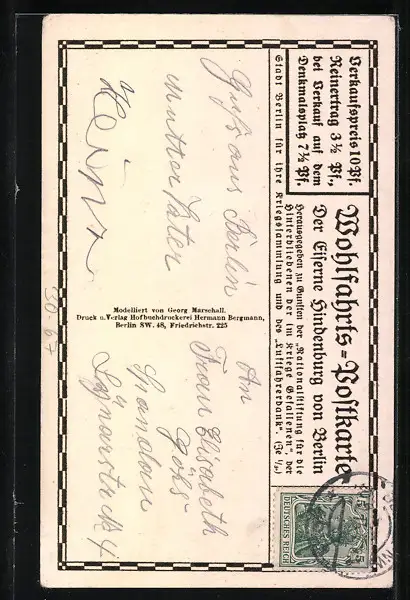 Verkaufspreis 10 Pf.
Reinertrag 3½ Pf.,
bei Verkauf auf dem
Denkmalsplatz 7½ Pf.
Wohlfahrts=Postkarte
Der Eiserne Hindenburg von Berlin
Herausgegeben zu Gunsten der „Nationalstiftung für die
Hinterbliebenen der im Kriege Gefallenen", der
Stadt Berlin für ihre Kriegssammlung und des „Luftfahrerdank". (Je ⅓)
DEUTSCHES REICH
5
5
Gruß aus Berlin
Mutter Vater
Heinz
Modelliert von Georg Marschall.
Druck u. Verlag Hofbuchdruckerei Hermann Bergmann,
Berlin SW. 48, Friedrichstr. 225
An
Frau Elisabeth
Spandau
30-67